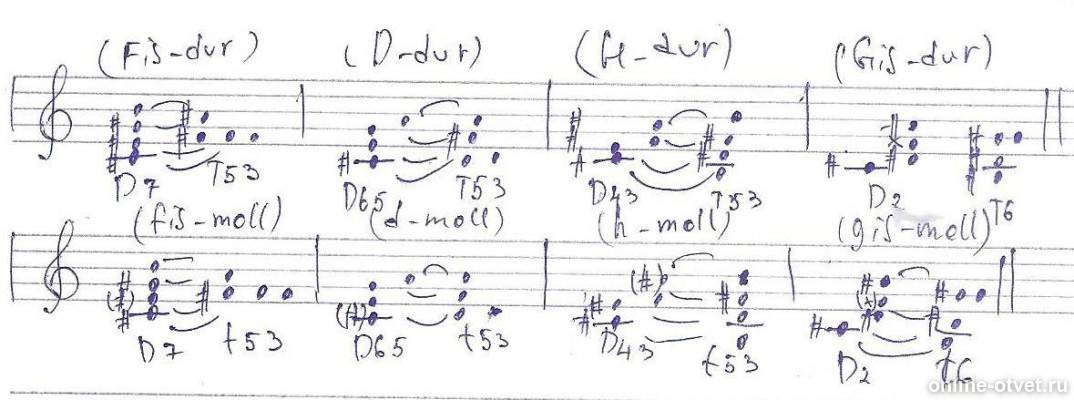 (Fis-dur) (D-dur) (H-dur) (Gis-dur)
D7 T53 D65 T53 D43 T53 D2 T6
(fis-moll) (d-moll) (h-moll) (gis-moll)
D7 t53 D65 t53 D43 t53 D2 t6
online-otvet.ru